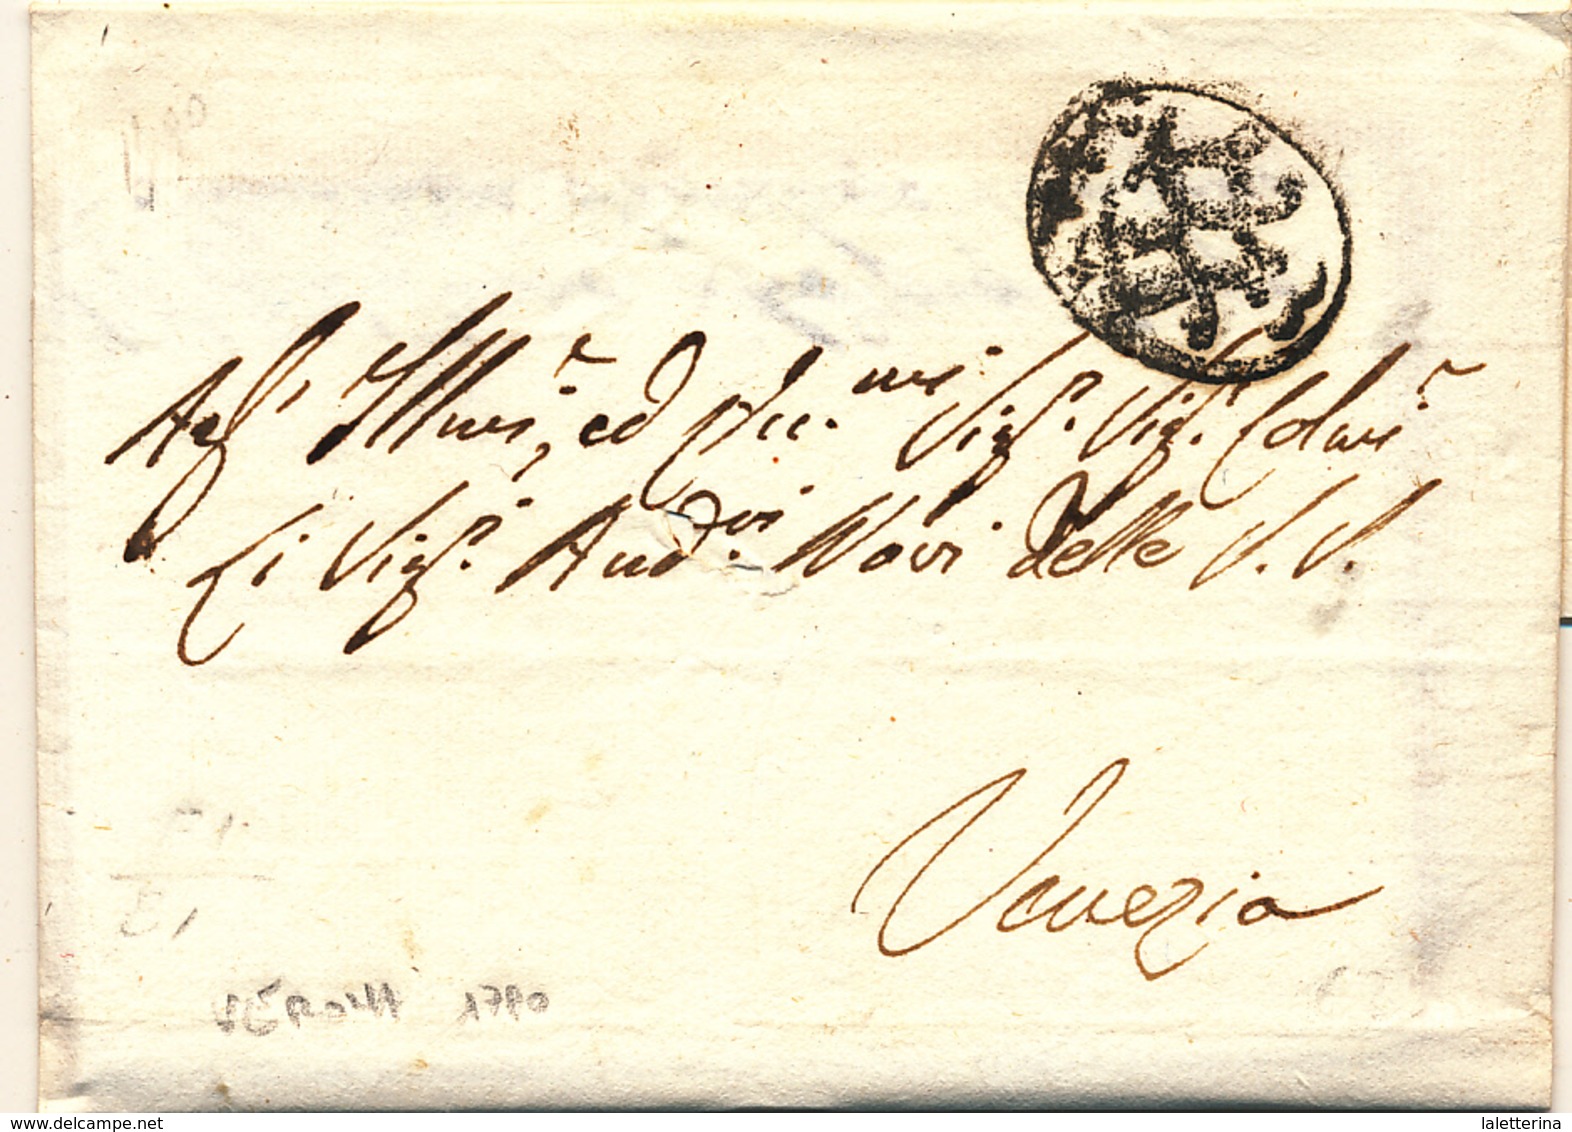 1790
Agl' Illus.i, ed Ecc.mi Sig.i Sig.i Colmi
Li Sig.i Aud.ri Novi delle S. S.
Venezia
VERONA 1790
www.delcampe.net
laletterina